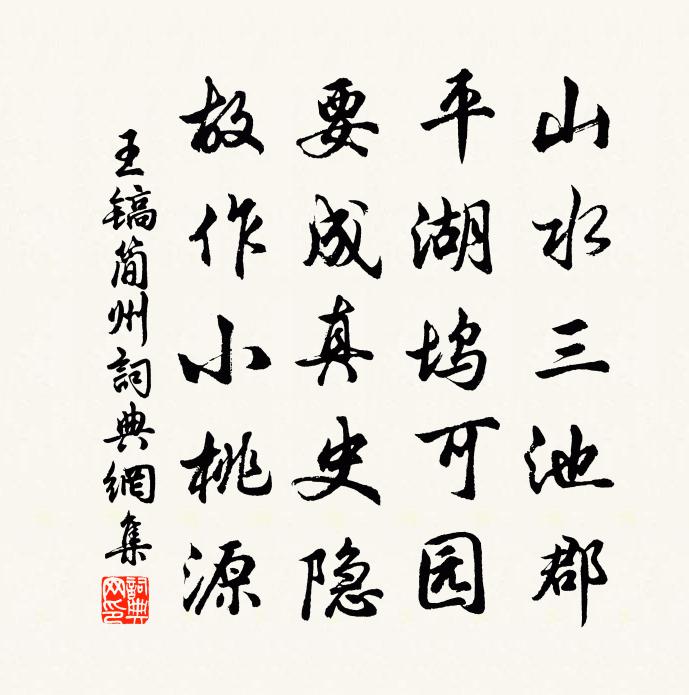 山水三池郡
平湖坞可园
要成真史隐
故作小桃源
王镐简州詞典網集
詞典网印